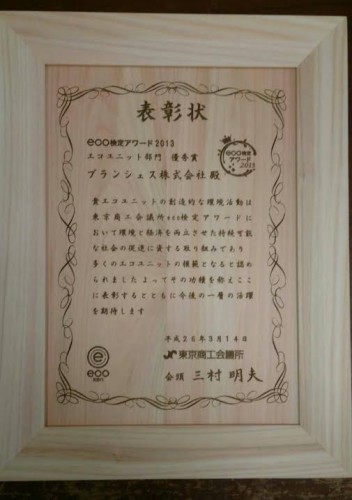 表彰状
eco検定アワード2013
エコユニット部門 優秀賞
ブランシェス株式会社 殿
eco検定
アワード
2013
貴エコユニットの創造的な環境活動は
東京商工会議所eco検定アワードに
おいて環境と経済を両立させた持続可能
な社会の促進に資する取り組みであり
多くのエコユニットの模範となると認め
られました よってその功績を称えここ
に表彰するとともに今後の一層の活躍
を期待します
平成26年3月14日
東京商工会議所
会頭 三村 明夫
eco